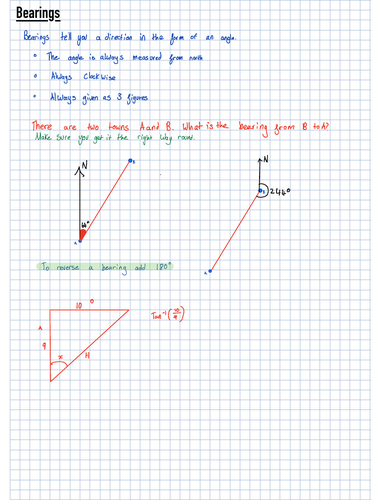 Bearings
Bearings tell you a direction in the form of an angle.
• The angle is always measured from north
• Always clockwise
• Always given as 3 figures
There are two towns A and B. What is the bearing from B to A?
Make sure you get it the right way round.
N
B
A
N
B
246°
A
To reverse a bearing add 180°
10
O
A
9
x
H
Tan⁻¹(10/9)